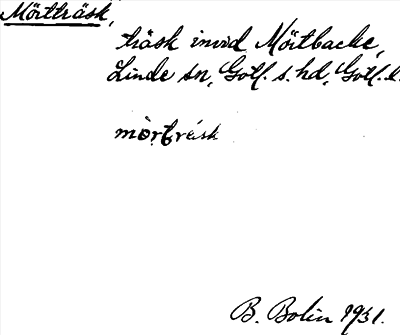 Mörtträsk,
träsk invid Mörtbacke,
Linde sn, Gotl. s. hd, Gotl. l.
mò̀rtrásk
B. Bolin 1931.